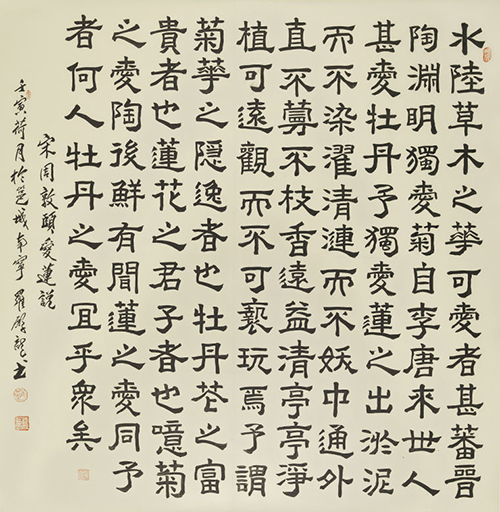 水陸草木之華可愛者甚蕃晉
陶淵明獨愛菊自李唐來世人
甚愛牡丹予獨愛蓮之出淤泥
而不染濯清漣而不妖中通外
直不蔓不枝香遠益清亭亭淨
植可遠觀而不可褻玩焉予謂
菊華之隱逸者也牡丹花之富
貴者也蓮花之君子者也噫菊
之愛陶後鮮有聞蓮之愛同予
者何人牡丹之愛宜乎眾矣
宋周敦頤愛蓮說
壬寅荷月於邕城南寧羅書